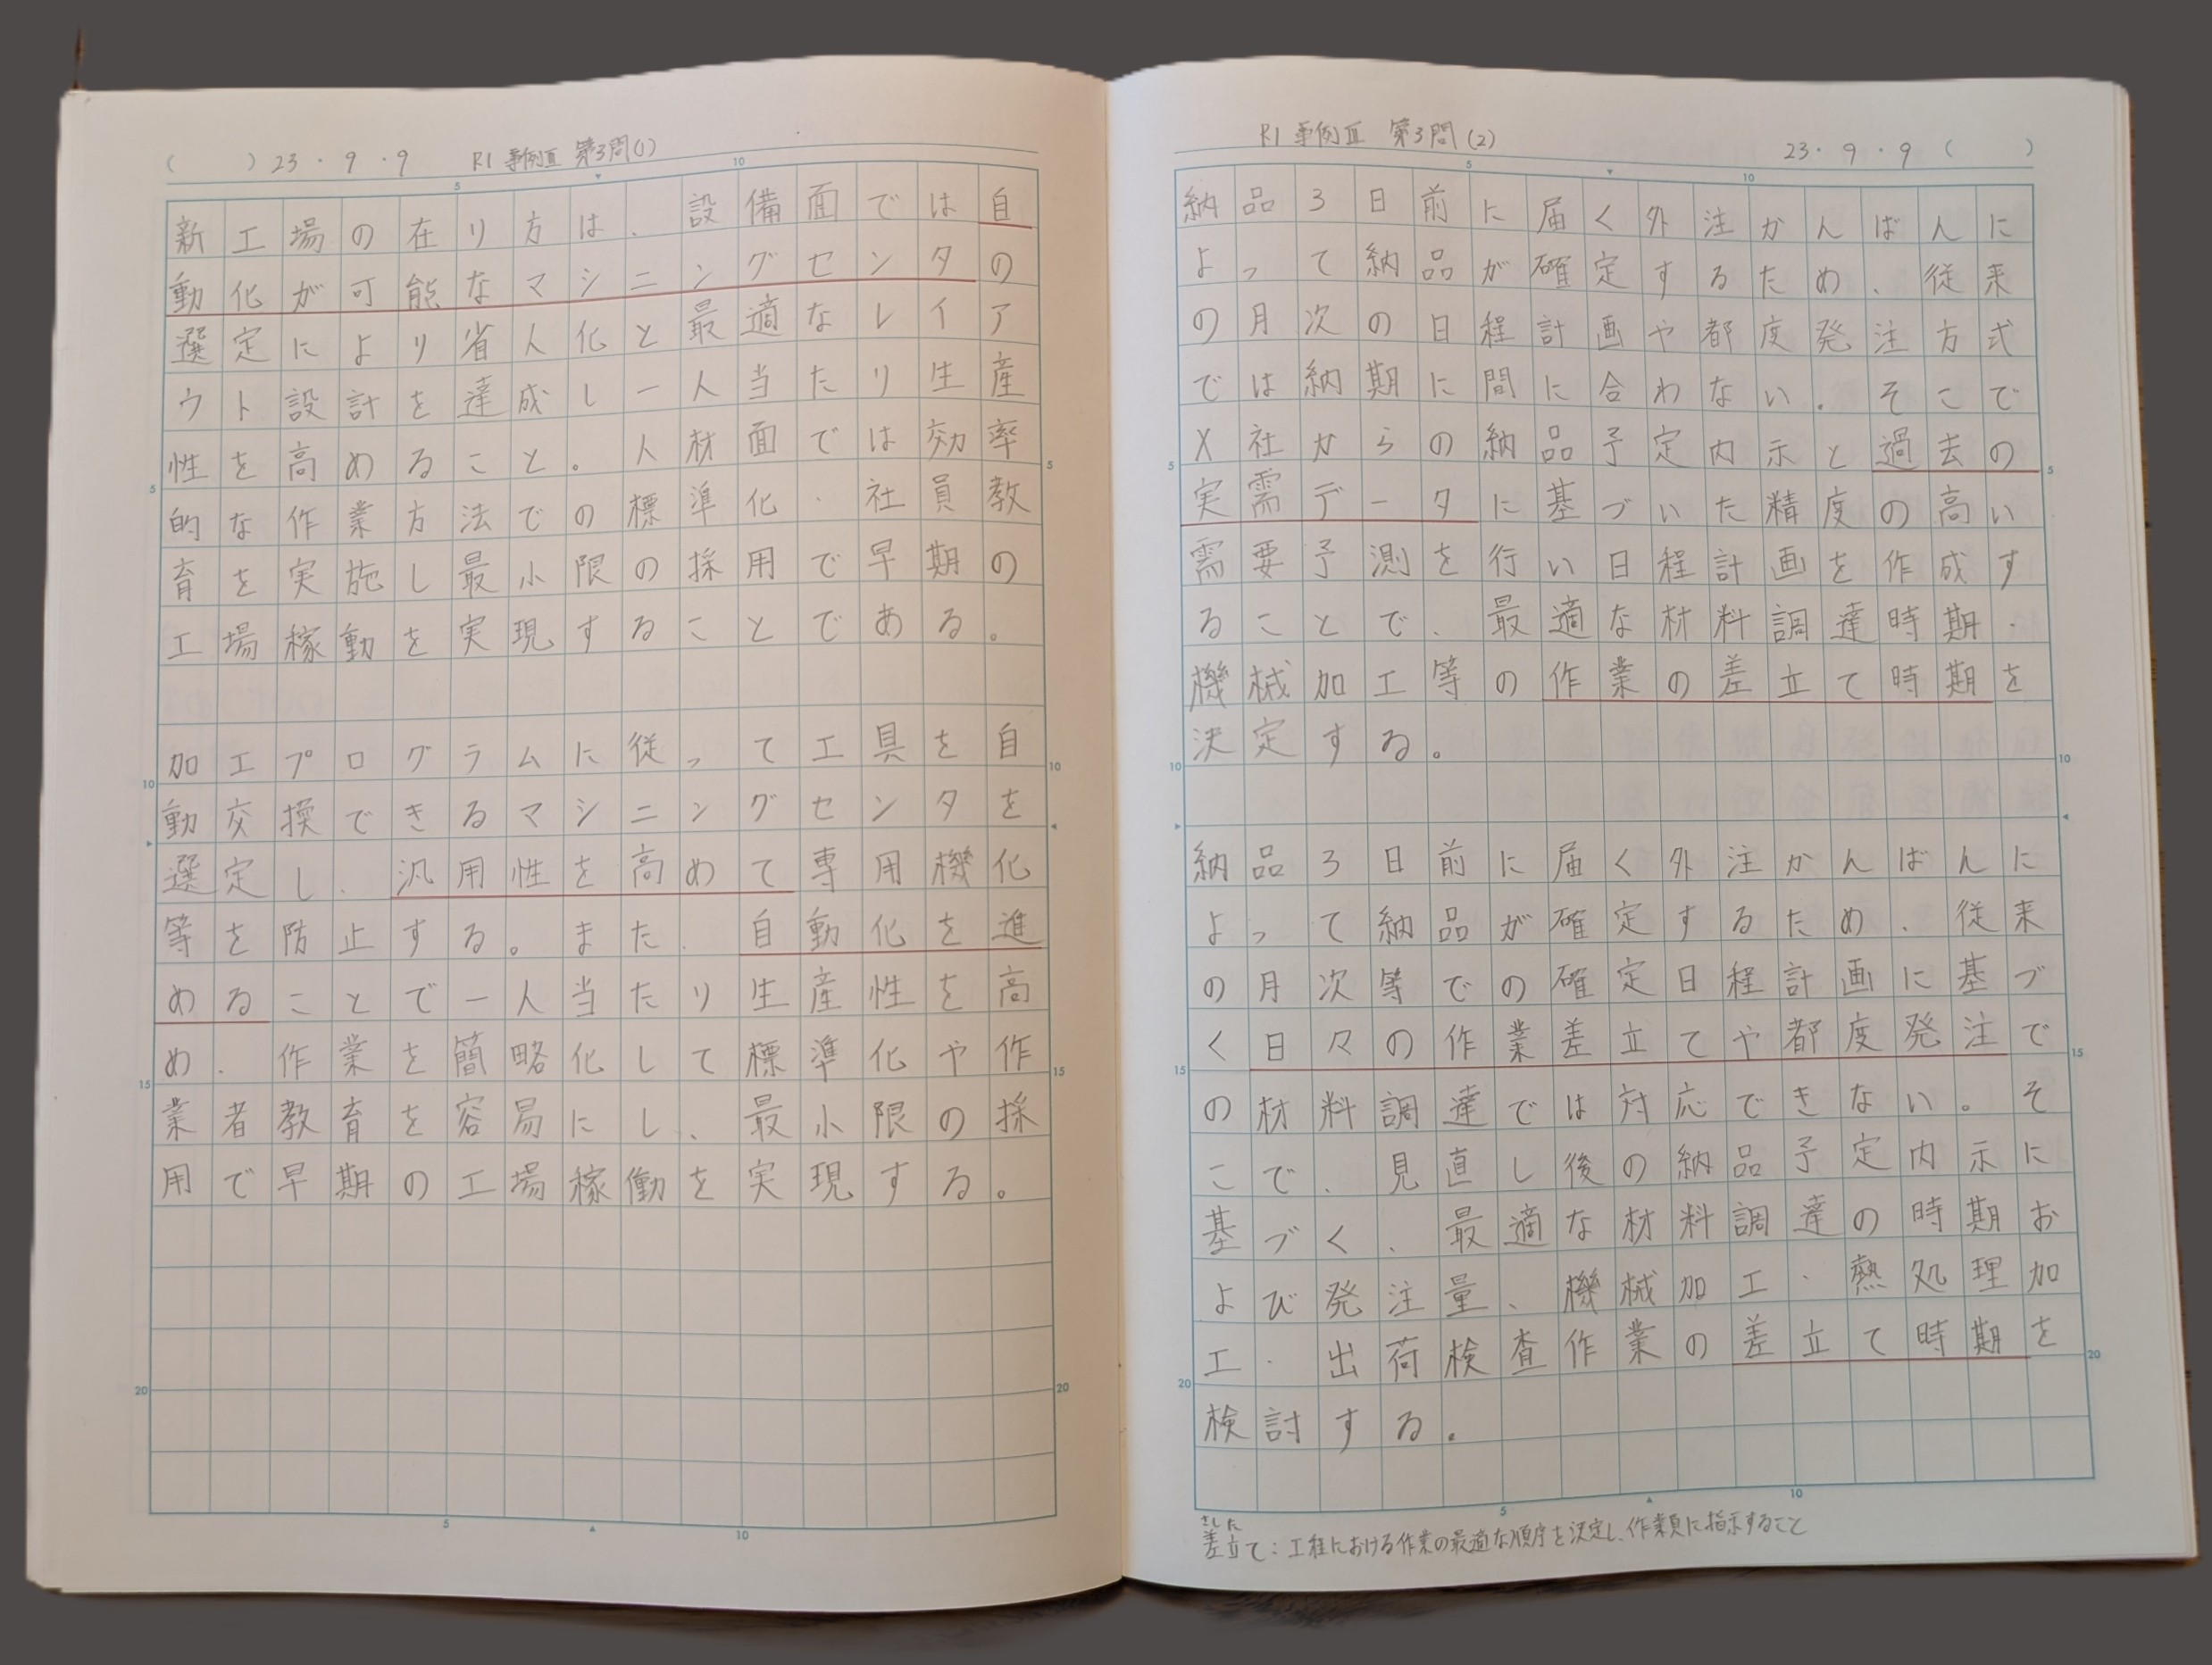 ( ) 23・9・9 R1 事例Ⅲ 第3問(1)
5
10
新工場の在り方は、設備面では自
動化が可能なマシニングセンタの
選定により省人化と最適なレイア
ウト設計を達成し一人当たり生産
性を高めること。人材面では効率
5
5
的な作業方法での標準化・社員教
育を実施し最小限の採用で早期の
工場稼動を実現することである。
加工プログラムに従って工具を自
10
10
動交換できるマシニングセンタを
選定し、汎用性を高めて専用機化
等を防止する。また、自動化を進
めることで一人当たり生産性を高
め、作業を簡略化して標準化や作
15
15
業者教育を容易にし、最小限の採
用で早期の工場稼働を実現する。
20
20
5
10
R1 事例Ⅲ 第3問(2) 23・9・9 ( )
5
10
納品3日前に届く外注かんばんに
よって納品が確定するため、従来
の月次の日程計画や都度発注方式
では納期に間に合わない。そこで
X社からの納品予定内示と過去の
5
5
実需データに基づいた精度の高い
需要予測を行い日程計画を作成す
ることで、最適な材料調達時期・
機械加工等の作業の差立て時期を
決定する。
10
10
納品3日前に届く外注かんばんに
よって納品が確定するため、従来
の月次等での確定日程計画に基づ
く日々の作業差立てや都度発注で
15
15
の材料調達では対応できない。そ
こで、見直し後の納品予定内示に
基づく、最適な材料調達の時期お
よび発注量、機械加工・熱処理加
工・出荷検査作業の差立て時期を
20
20
検討する。
5
10
さした
差立て：工程における作業の最適な順序を決定し、作業員に指示すること